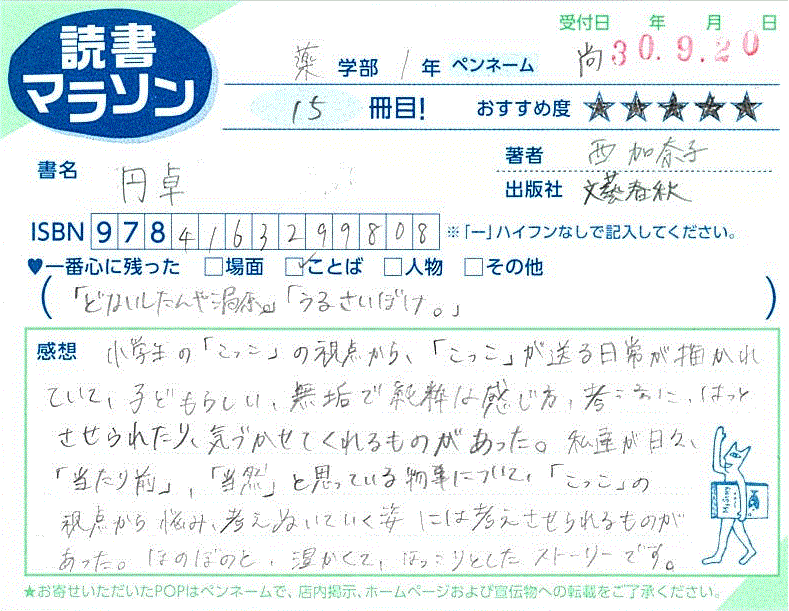 読書
マラソン
受付日 年 月 日
30.9.20
薬 学部 1 年 ペンネーム 尚
15 冊目! おすすめ度 ★★★★★
書名 円卓
著者 西加奈子
出版社 文藝春秋
ISBN 9784163299808 ※「ー」ハイフンなしで記入してください。
♥一番心に残った □場面 ☑ことば □人物 □その他
(「どないしたんや渦原。」「うるさいぼけ。」)
感想 小学生の「こっこ」の視点から、「こっこ」が送る日常が描かれ
ていて、子どもらしい、無垢で純粋な感じ方、考え方に、はっと
させられたり、気づかせてくれるものがあった。私達が日久、
「当たり前」、「当然」と思っている物事について、「こっこ」の
視点から悩み、考えぬいていく姿には考えさせられるものが
あった。ほのぼのと、温かくて、ほっこりとしたストーリーです。
★お寄せいただいたPOPはペンネームで、店内掲示、ホームページおよび宣伝物への転載をご了承ください。